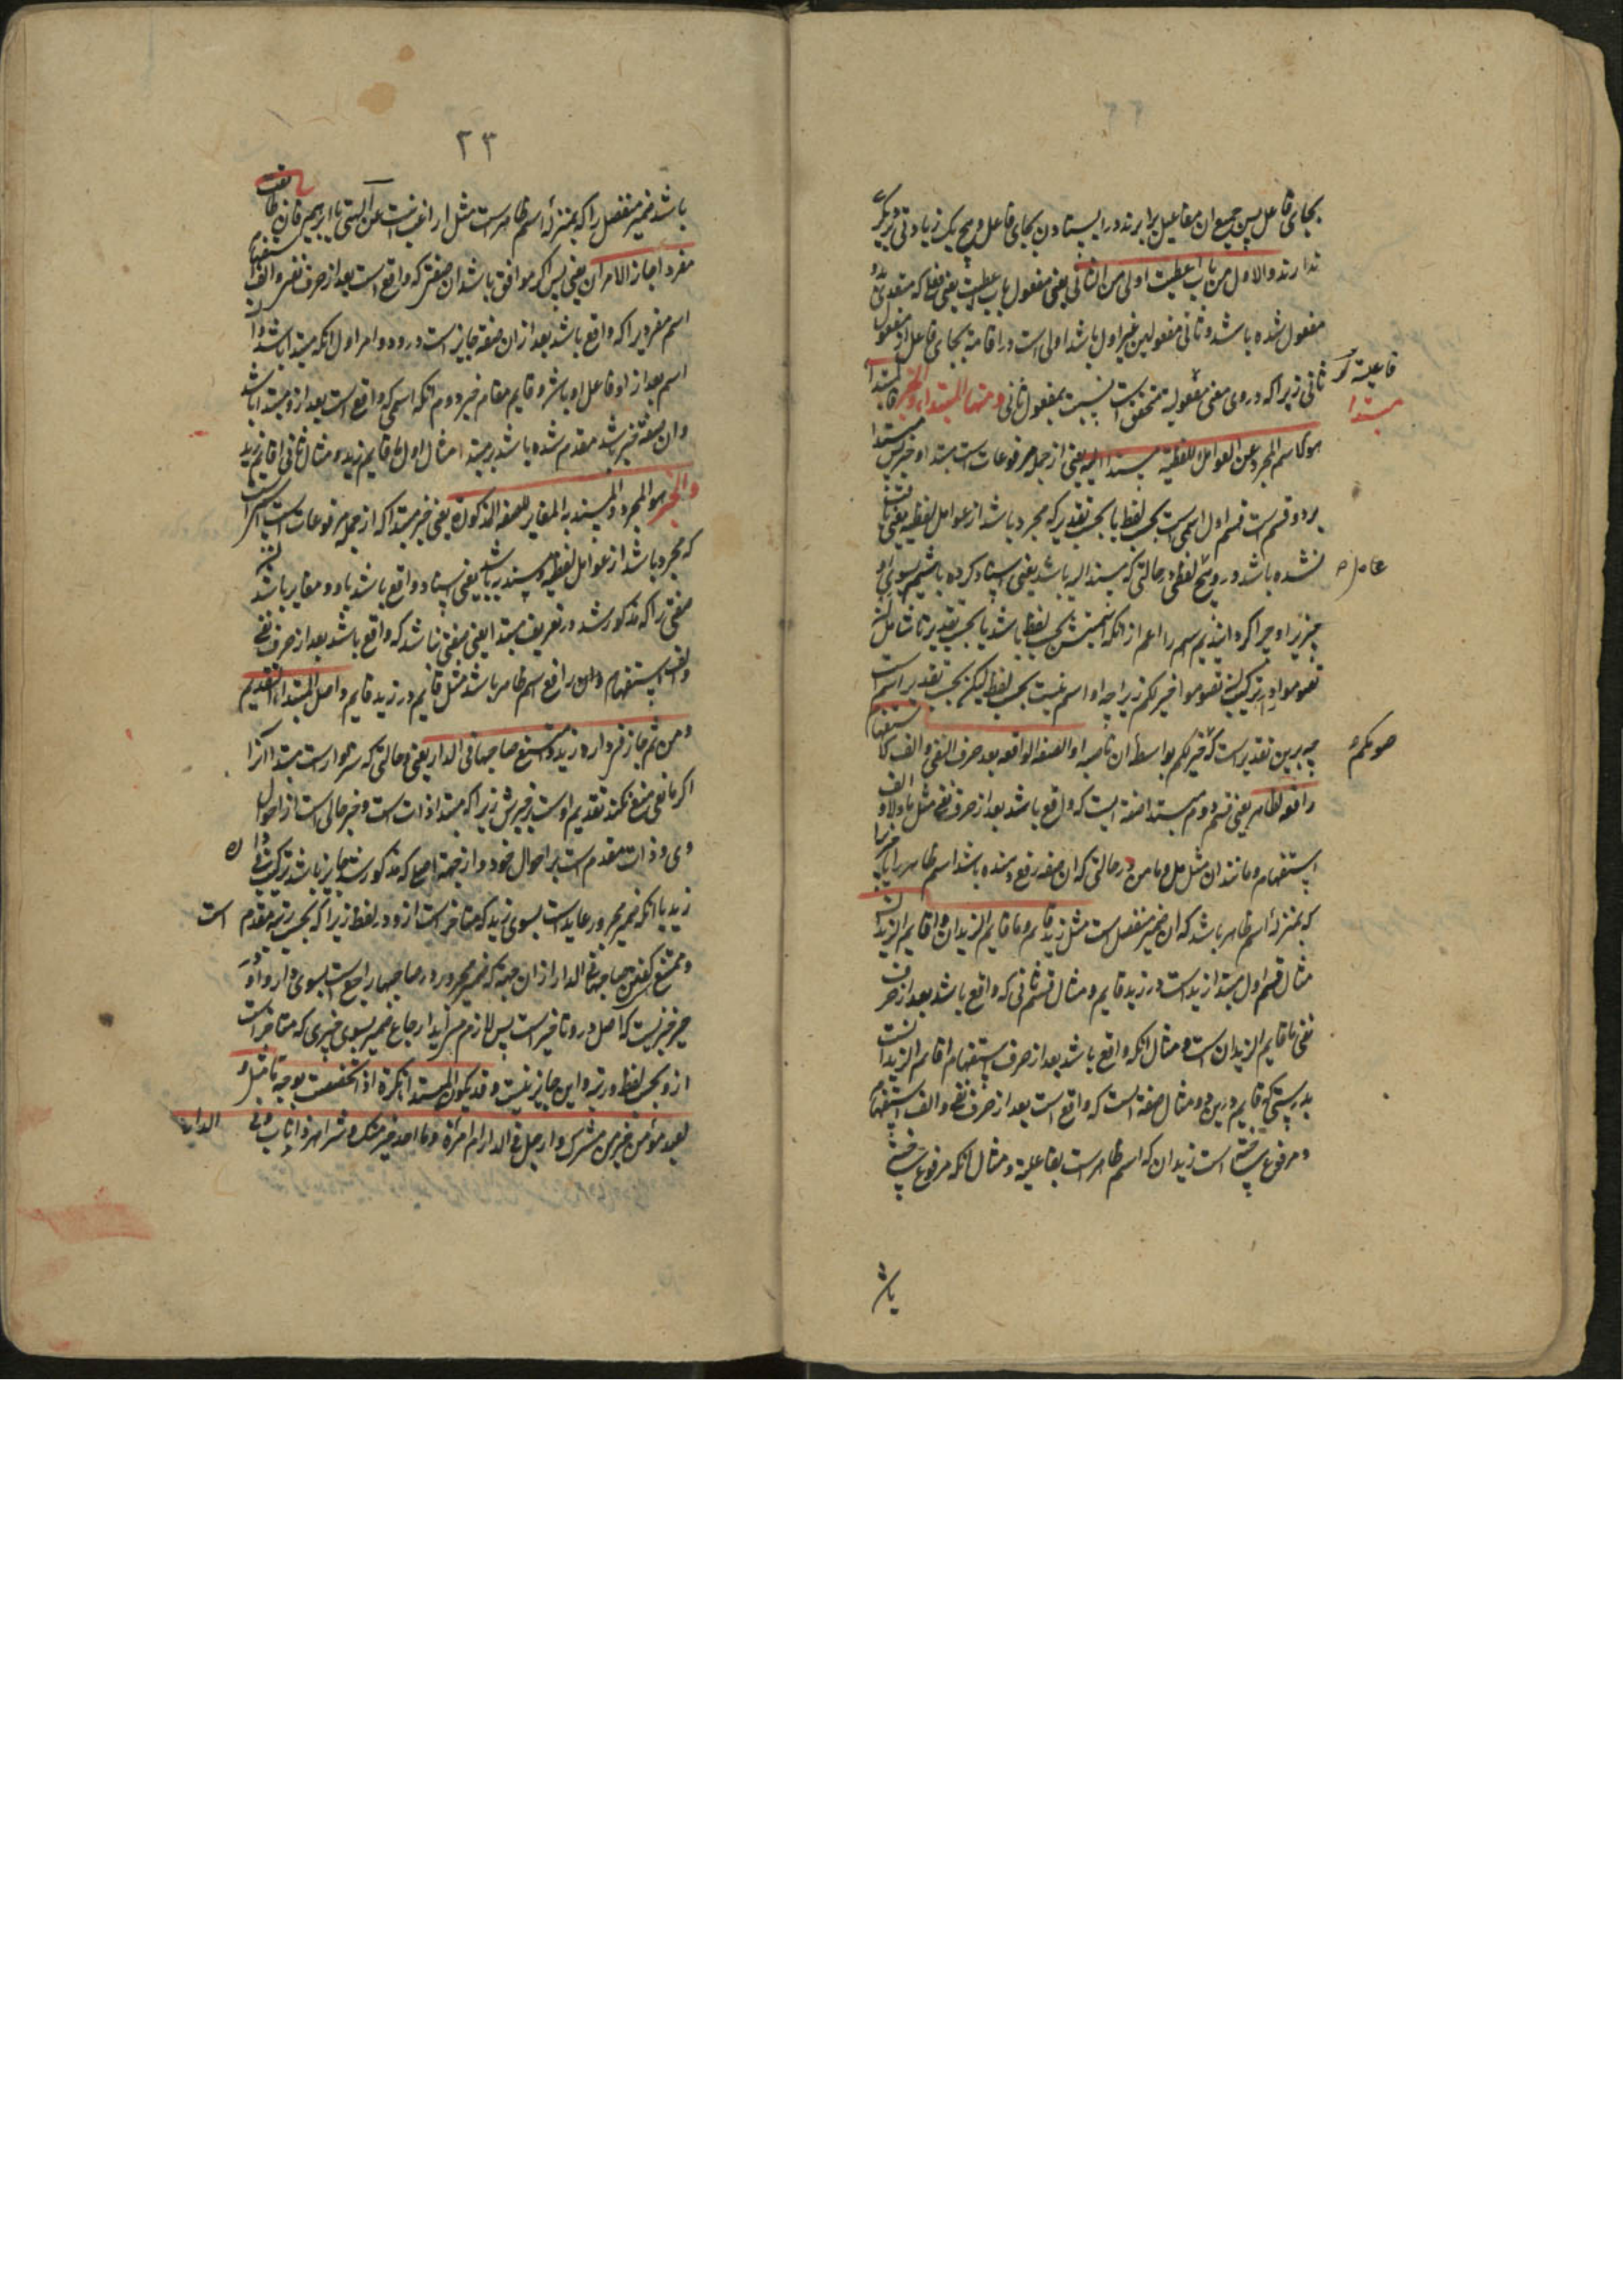 بجای فاعل پس جمیع ان مفاعیل برابرند در ایستادن بجای فاعل و هیچ یک زیادتی بر دیگری
ندارند والاول من باب اعطیت اولی من الثانی یعنی مفعول باب اعطیت یعنی فعلی که متعدی بدو
مفعول شده باشد و ثانی مفعولین غیر اول باشد اولی است در اقامة بجای فاعل از مفعول
ثانی زیراکه در وی معنی مفعولیة متحقق است نسبت بمفعول ثانی ومنها المبتداء والخبر فالمبتدا
فاعلیة
مبتدا
هو الاسم المجرد عن العوامل اللفظیة مسندا الیه یعنی از جمله مرفوعات است مبتدا و خبر پس مبتدا
بر دو قسم است قسم اول اسمی است بحسب لفظ یا بحسب تقدیر که مجرد باشد از عوامل لفظیه یعنی یافت
نشده باشد در وی هیچ لفظی در حالتی که مسند الیه باشد یعنی اسناد کرده باشیم بسوی او
عامل
چیزیرا و چرا کرده ایدیم اسم را اعم از انکه اسمیتش بحسب لفظ باشد یا بحسب تقدیر تا شامل
تصوموا در ترکیب ان تصوموا خیر لکم زیرا چه او اسم نیست بحسب لفظ لیکن بحسب تقدیر اسم است
چه برین تقدیر است که خیر لکم بواسطه ان ناصبه او الصفة الواقعه بعد حرف النفی والف الاستفهام
صومکم
رافعه لظاهر یعنی قسم دوم مبتدا صفة ایست که واقع باشد بعد از حرف نفی مثل ما و لا و الف
استفهام و مانند ان مثل هل و ما و من در حالتی که ان صفه رفع دهنده باشد اسم ظاهر را یا چیزیرا
که بمنزله اسم ظاهر باشد که ان ضمیر منفصل است مثل زید قایم وما قایم الزیدان و اقایم الزیدان
مثال قسم اول مبتدا زید است در زید قایم و مثال قسم ثانی که واقع باشد بعد از حرف
نفی ما قایم الزیدان است و مثال انکه واقع باشد بعد از حرف استفهام اقایم الزیدان است
بدرستی که قایم درین دو مثال صفة است که واقع است بعد از حرف نفی و الف استفهام
و مرفوع ساخته است زیدان که اسم ظاهر است بفاعلیة و مثال انکه مرفوع ساخته
باشد
۲۳
باشد ضمیر منفصل را که بمنزله اسم ظاهر است مثل اراغب انت عن آلهتی یا ابرهیم فان طابقت
مفردا جاز الامران یعنی پس اگر موافق باشد ان صفتی که واقع است بعد از حرف نفی و الف استفهام
اسم مفردیرا که واقع باشد بعد از ان صفة جایز است درو دو امر اول انکه مبتدا باشد و ان
اسم بعد از او فاعل او باشد و قایم مقام خبر دوم انکه اسمی که واقع است بعد از و مبتدا باشد
وان صفة خبر باشد مقدم شده باشد بر مبتدا مثال اول ما قایم زید و مثال ثانی اقایم زید
والخبر هو المجرد المسند به المغایر للصفه المذکوره یعنی خبر مبتدا که از جمله مرفوعات است
که مجرد باشد از عوامل لفظیه و مسند به باشد یعنی اسناد واقع باشد باو و مغایر باشد
صفتی را که مذکور شد در تعریف مبتدا یعنی صفتی نباشد که واقع باشد بعد از حرف نفی
والف استفهام و ان رافع اسم ظاهر باشد مثل قایم در زید قایم واصل المبتدا التقدیم
ومن ثم جاز فی داره زید وامتنع صاحبها فی الدار یعنی حالتی که سزاوار است مبتدا انرا
اگر مانعی منع نکند تقدیم اوست بر خبرش زیراکه مبتدا ذات است و خبر حالی است از احوال
وی و ذات مقدم است بر احوال خود و از جهة اصلی که مذکور شد جایز باشد ترکیب فی داره
زید باانکه ضمیر مجرور عاید است بسوی زید که متاخر است ازو در لفظ زیراکه بحسب رتبه مقدم است
و ممتنع است گفتن صاحبها فی الدار از ان جهة که ضمیر مجرور در صاحبها راجع است بسوی دار و او در
حیز خبریست که اصل درو تاخیر است پس لازم می آید ارجاع ضمیر بسوی خبری که متاخر است
ازو بحسب لفظ و رتبه و این جایز نیست وقد یکون المبتدا نکرة اذا تخصصت بوجه ما مثل و
لعبد مؤمن خیر من مشرک وارجل فی الدار ام امرأة وما احد خیر منک وشر اهر ذا ناب وفی الدار